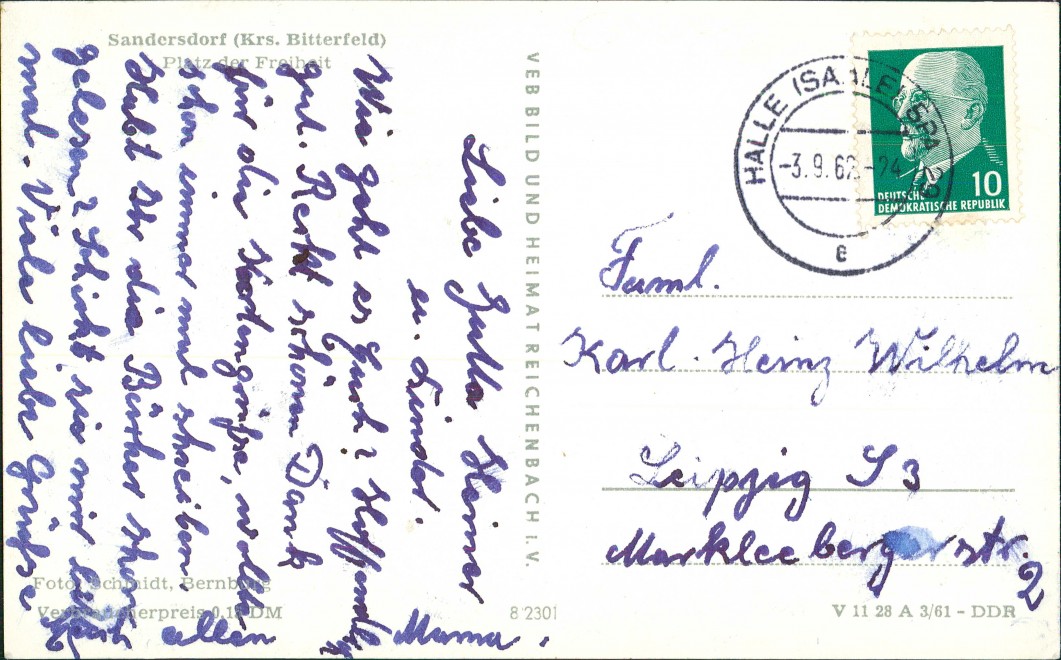 Sandersdorf (Krs. Bitterfeld)
Platz der Freiheit
Liebe Jutta Heiner
u. Kinder.
Wie geht es Euch? Hoffendl.
gut. Recht schönen Dank
für die Kartengrüße, wollte
schon immer mal schreiben.
Habt Ihr die Bücher schon
gelesen? Schickt sie mir
mal. Viele liebe Grüße
allen Mama.
Foto: Schmidt, Bernburg
Verbraucherpreis 0,15 DM
8 2301
VEB BILD UND HEIMAT REICHENBACH I. V.
HALLE (SAALE)
-3.9.62.-24
e
10
DEUTSCHE
DEMOKRATISCHE REPUBLIK
Faml.
Karl-Heinz Wilhelm
Leipzig S 3
Markleebergerstr.
2
V 11 28 A 3/61 - DDR